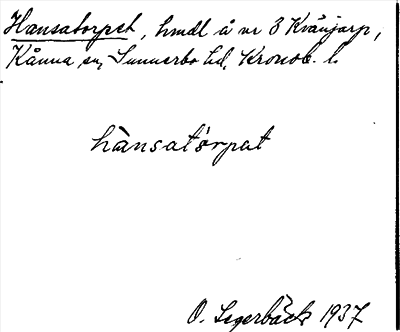 Hansatorpet, hmdl å nr 3 Kvänjarp,
Kånna sn, Sunnerbo hd, Kronob. l.
hànsatǻrpat
O. Segerbäck 1937